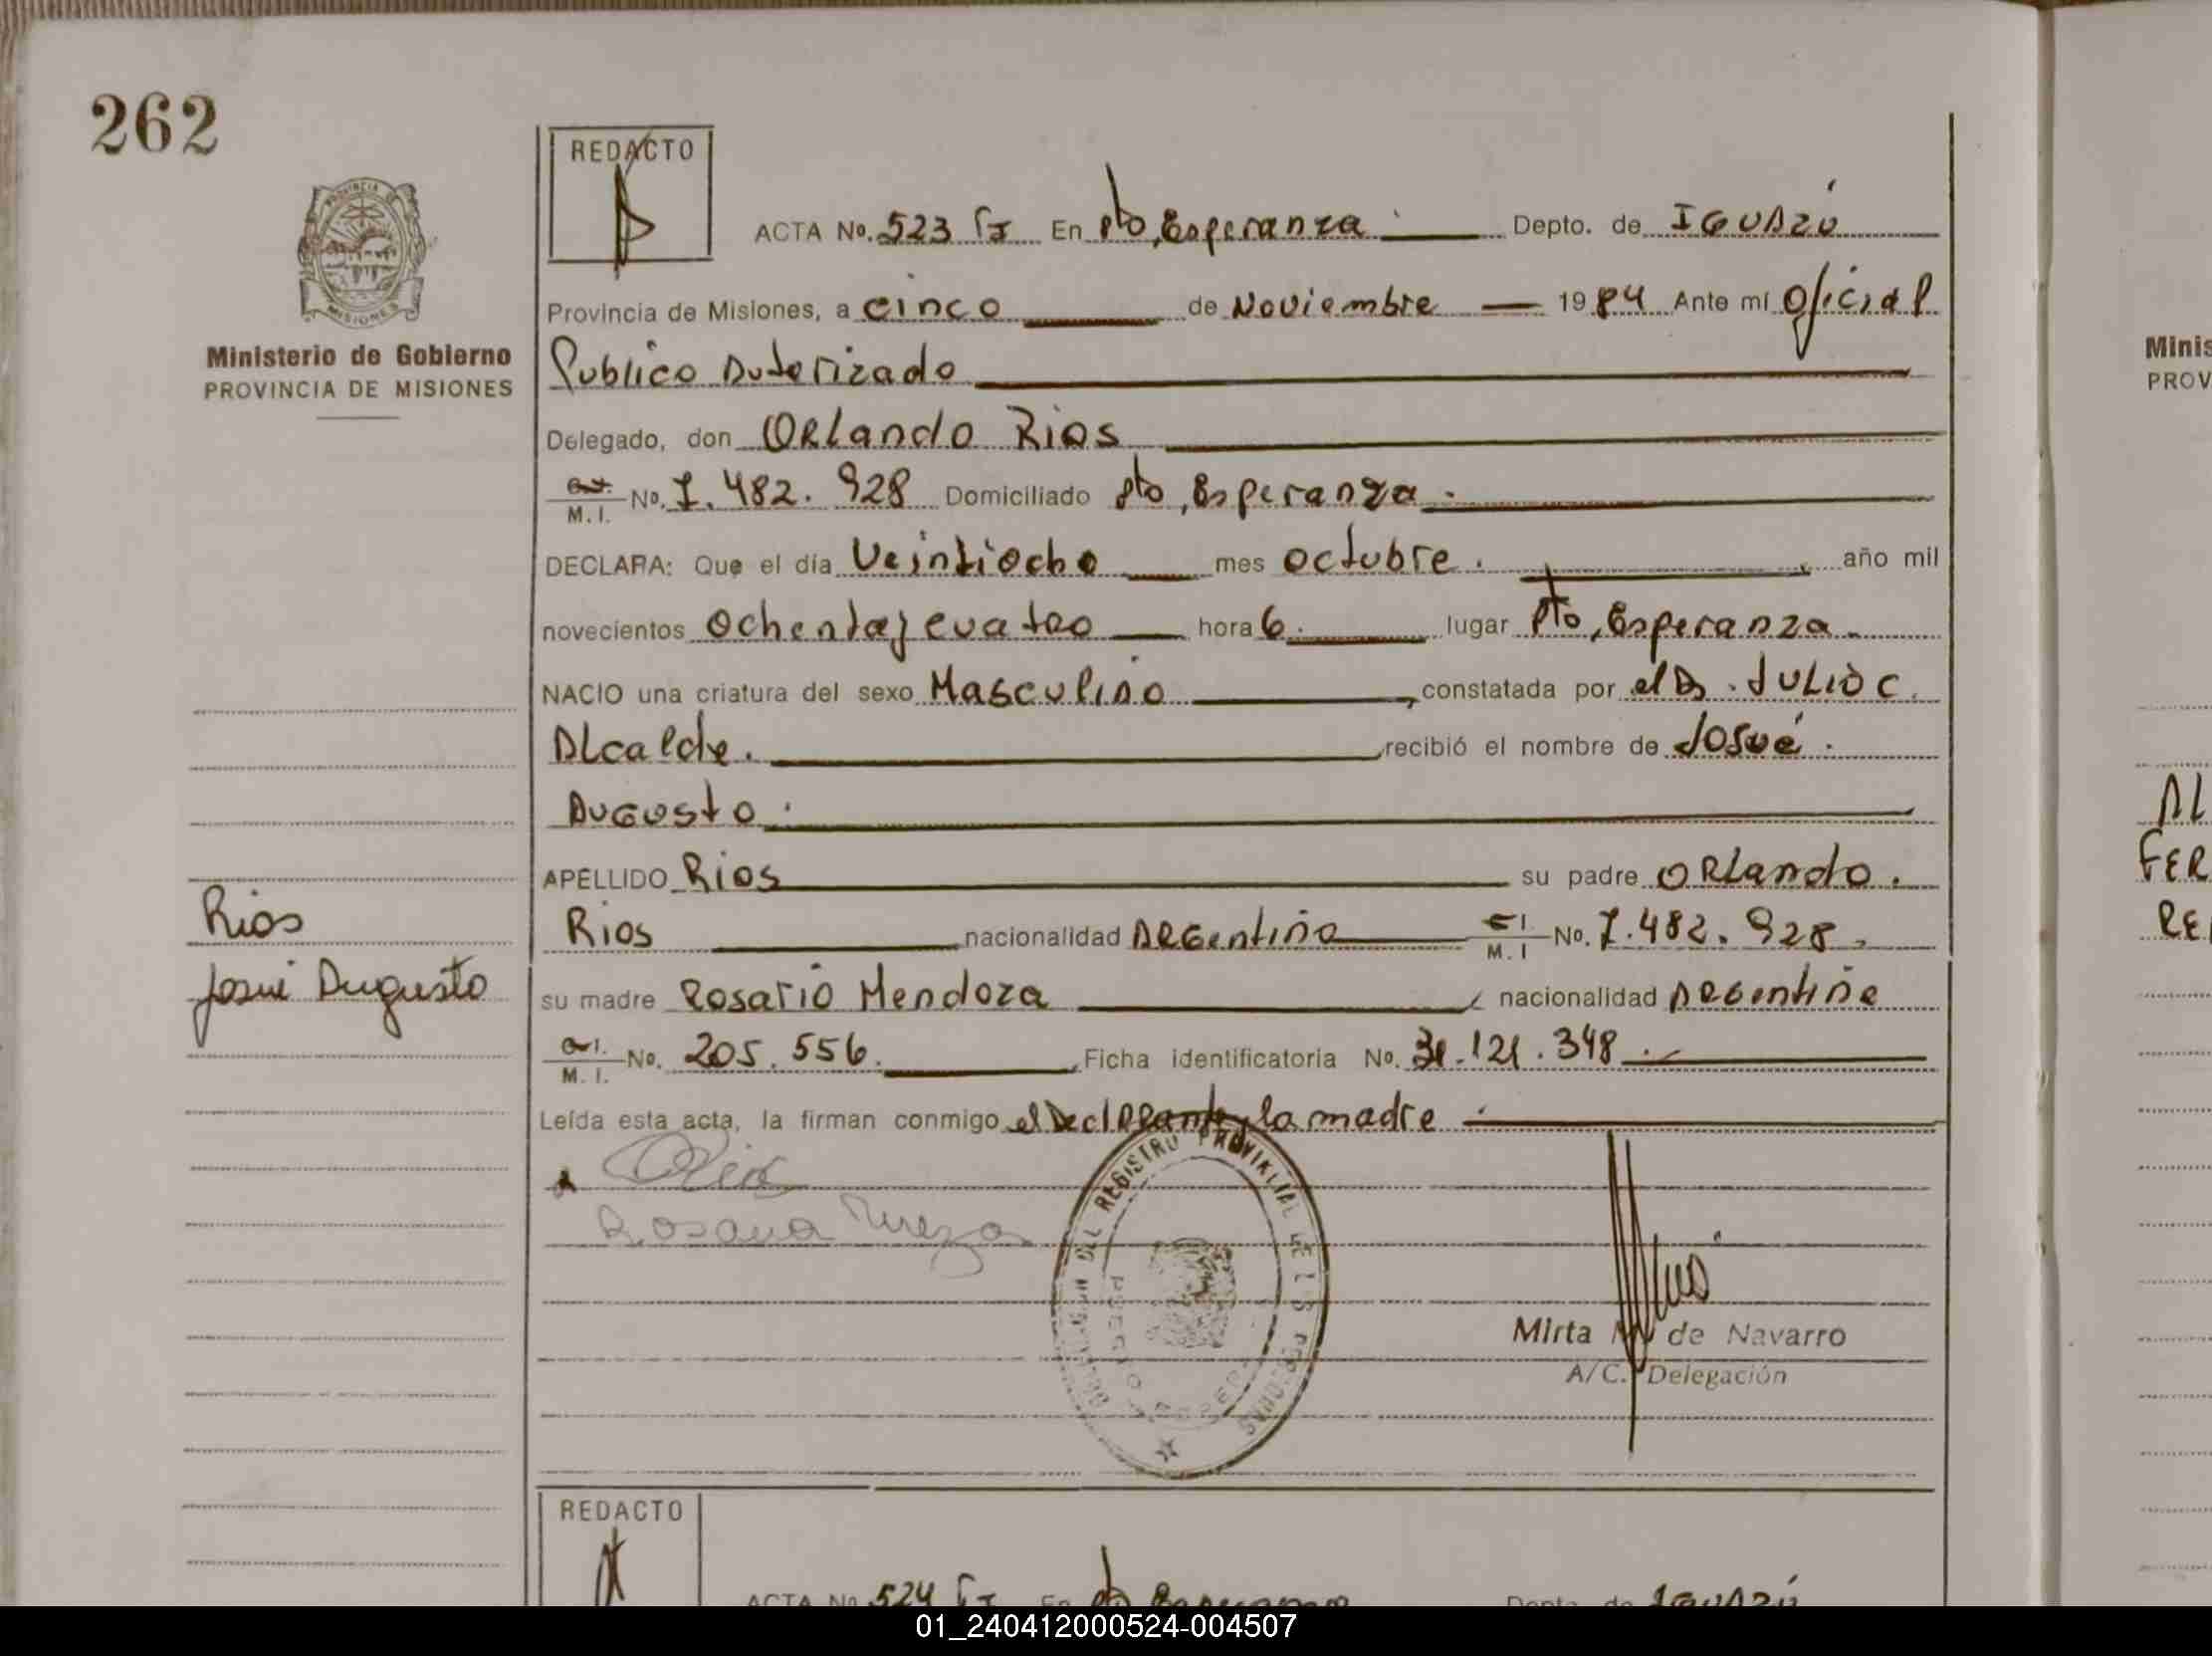 262
REDACTO
ACTA No. 523 En Pto, Esperanza. Depto. de IGUAZÚ
PROVINCIA DE
MISIONES
Provincia de Misiones, a cinco de Noviembre 1984 Ante mí Oficial
Ministerio de Gobierno
PROVINCIA DE MISIONES
Publico Autorizado
Delegado, don Orlando Rios
M. I. No. 7.482.928 Domiciliado Pto, Esperanza.
DECLARA: Que el día Veintiocho mes octubre. año mil
novecientos Ochenta y cuatro hora 6. lugar Pto, Esperanza.
NACIO una criatura del sexo Masculino, constatada por el Dr. JULIO C.
Alcalde. recibió el nombre de Josué.
Augusto.
APELLIDO Rios su padre Orlando.
Rios nacionalidad Argentina M. I No. 7.482.928.
Rios
Josué Augusto
su madre Rosario Mendoza, nacionalidad Argentina
M. I. No. 205.556. Ficha identificatoria No. 31.121.348.
Leída esta acta, la firman conmigo el Declarante y la madre
DEL REGISTRO PROVINCIAL DE LAS PERSONAS
Mirta M. de Navarro
A/C. Delegación
REDACTO
ACTA No. 524 En Pto Esperanza Depto. de IGUAZÚ
Minis
PROV
AL
FER
RE
01_240412000524-004507